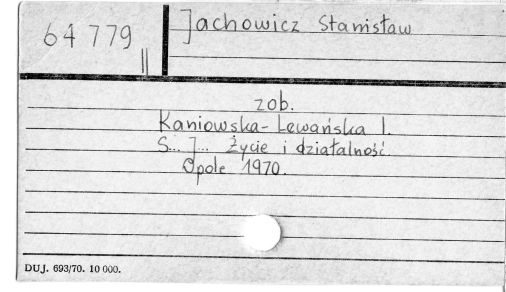 64 779
II
Jachowicz Stanisław
zob.
Kaniowska-Lewańska I.
S... J... Życie i działalność.
Opole 1970.
DUJ. 693/70. 10 000.